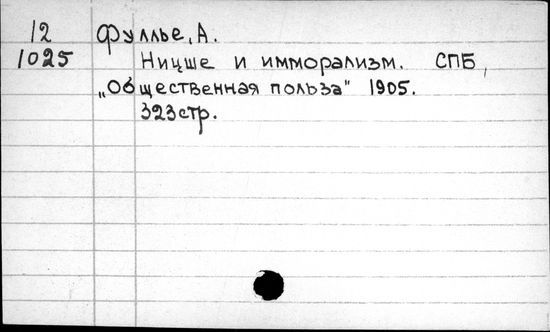 12 Фуллье, А.
1025 Ницше и имморализм. СПБ,
„Общественная польза" 1905.
323стр.